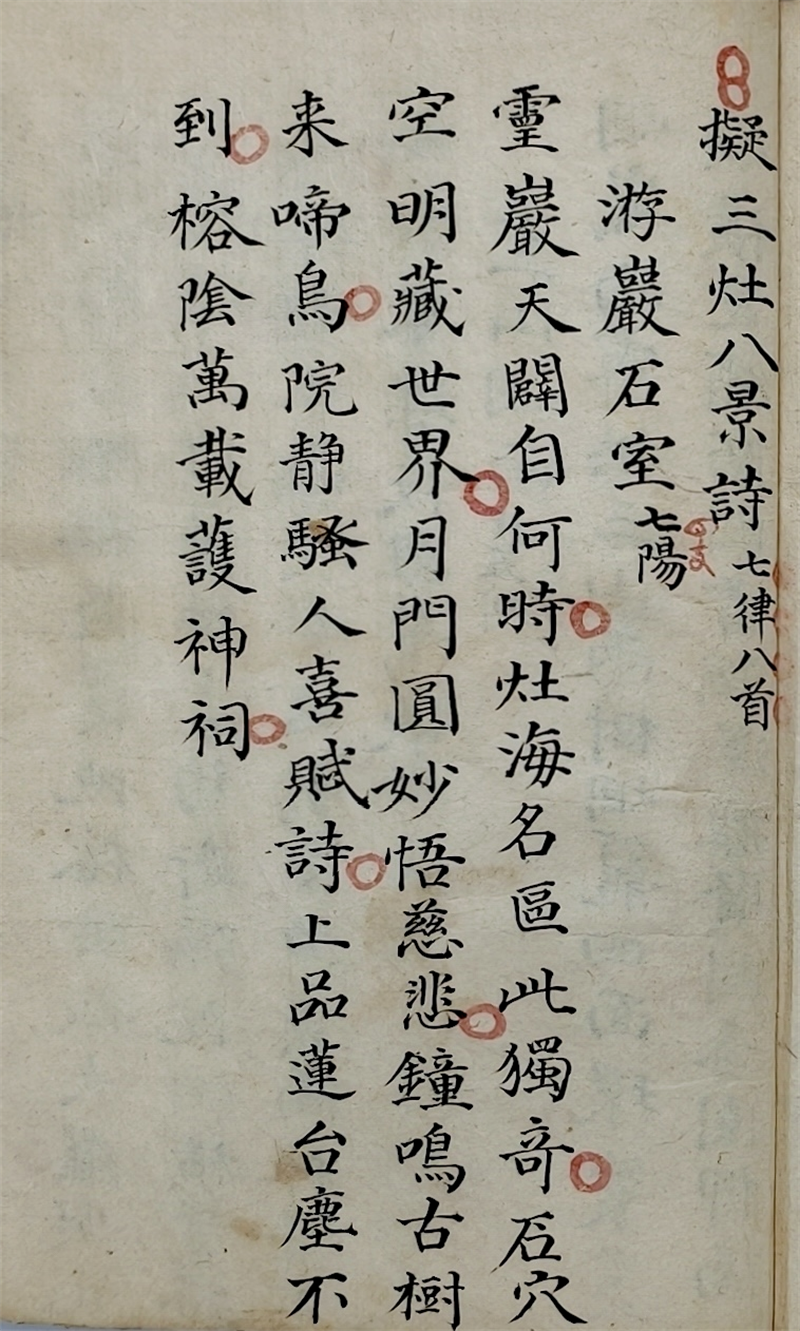 擬三灶八景詩 七律八首
游巖石室 七陽 四支
靈巖天闢自何時灶海名區此獨竒石穴
空明藏世界月門圓妙悟慈悲鐘鳴古樹
来啼鳥院静騷人喜賦詩上品蓮台塵不
到榕陰萬載護神祠